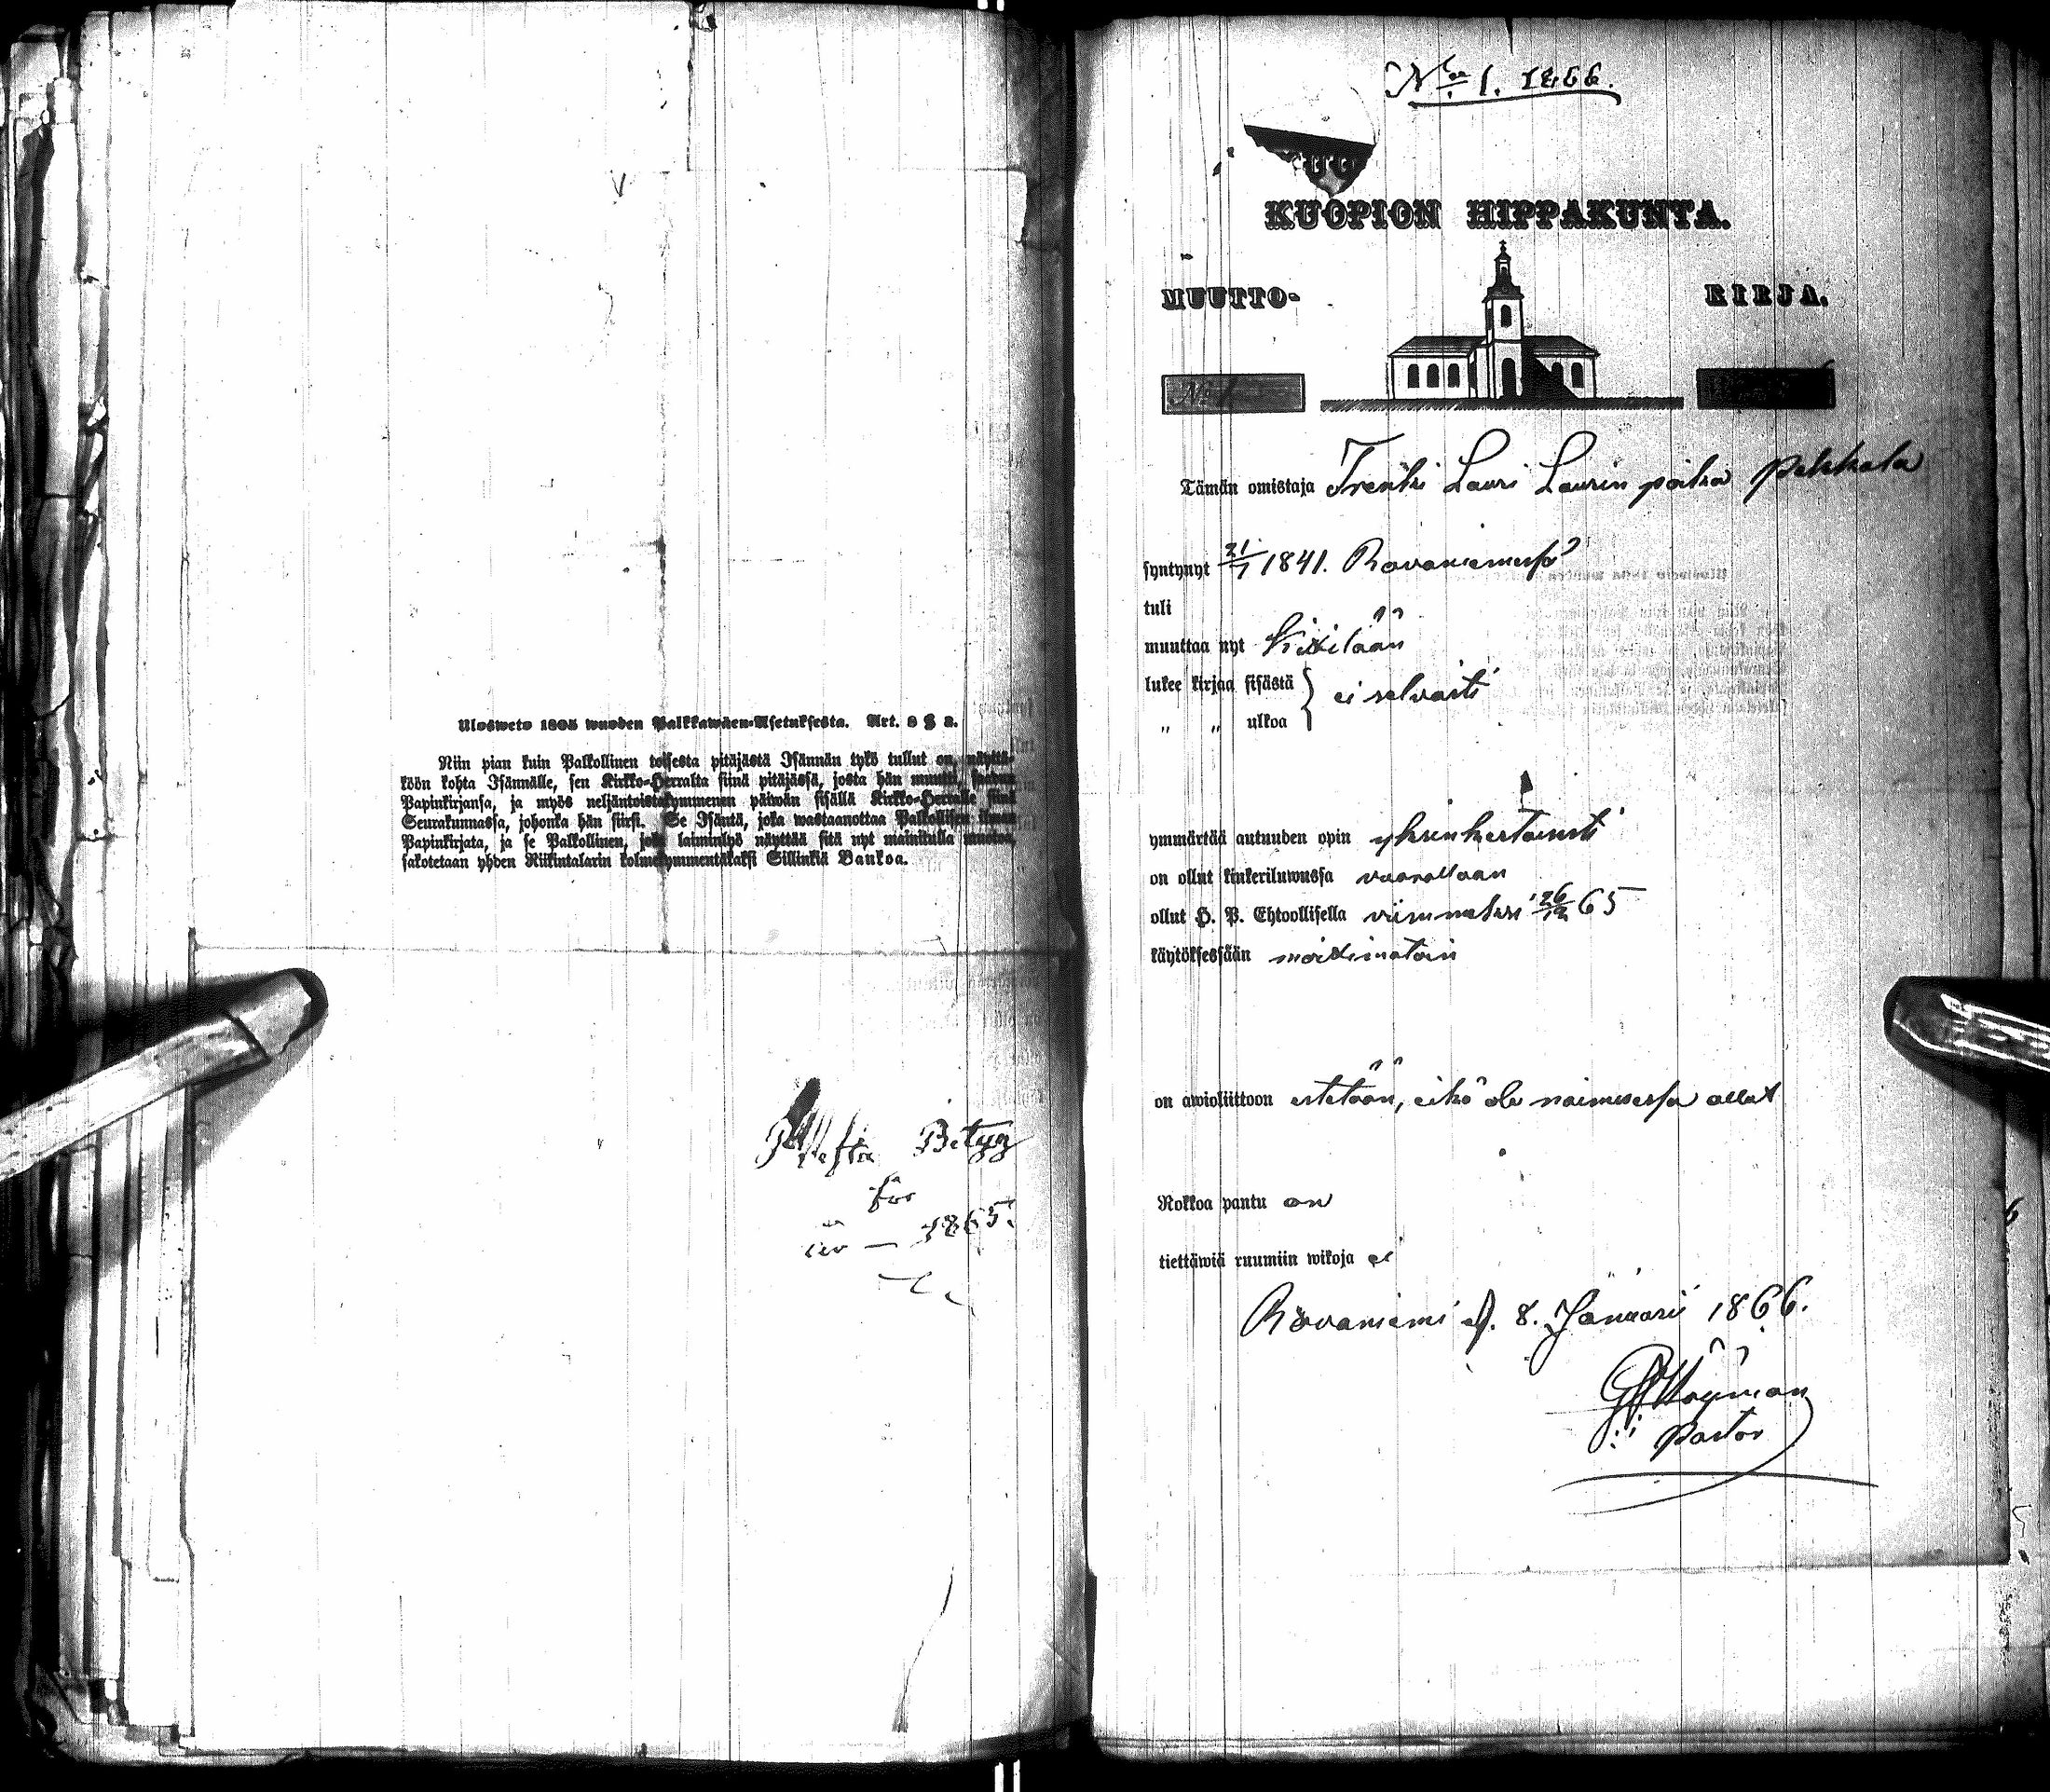 Ulosweto 1805 wuoden Palkkawäen-Asetuksesta. Art. 8 § 2.
Niin pian kuin Palkollinen toisesta pitäjästä Isännän tykö tullut on, näyttä-
köön kohta Isännälle, sen Kirkko-Herralta siinä pitäjässä, josta hän muutti, saadun
Papinkirjansa, ja myös neljäntoistakymmenen päiwän sisällä Kirkko-Herralle siinä
Seurakunnassa, johonka hän siirsi. Se Isäntä, joka wastaanottaa Palkollisen ilman
Papinkirjata, ja se Palkollinen, joka laiminlyö näyttää sitä nyt mainitulla muotoa,
sakotetaan yhden Riikintalarin kolmekymmentäkaksi Sillinkiä Bankoa.
Betyg
för
år — 1865.
No 1. 1866.
KUOPION HIPPAKUNTA.
MUUTTO- KIRJA.
No 1
Tämän omistaja Trenki Lauri Laurin poika Pekkala
syntynyt 21/1 1841. Rovaniemessä
tuli
muuttaa nyt Kittilään
lukee kirjaa sisästä } ei selvästi
„ „ ulkoa
ymmärtää autuuden opin yksinkertaisesti
on ollut kinkeriluwussa vuorollaan
ollut H. P. Ehtoollisella viimmeksi 26/12 65
käytöksessään moittimatoin
on awioliittoon estetöön, eikä ole naimisessa ollut
Rokkoa pantu on
tiettäwiä ruumiin wikoja ei
Rovaniemi d. 8. Januarii 1866.
Pastor